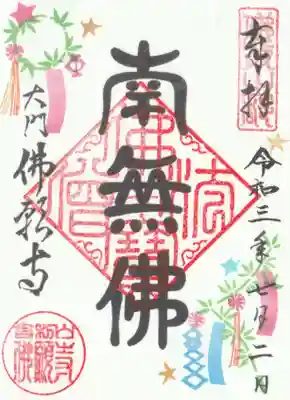 奉拝
令和三年七月二日
南無佛
佛法僧寶
大門
佛願寺